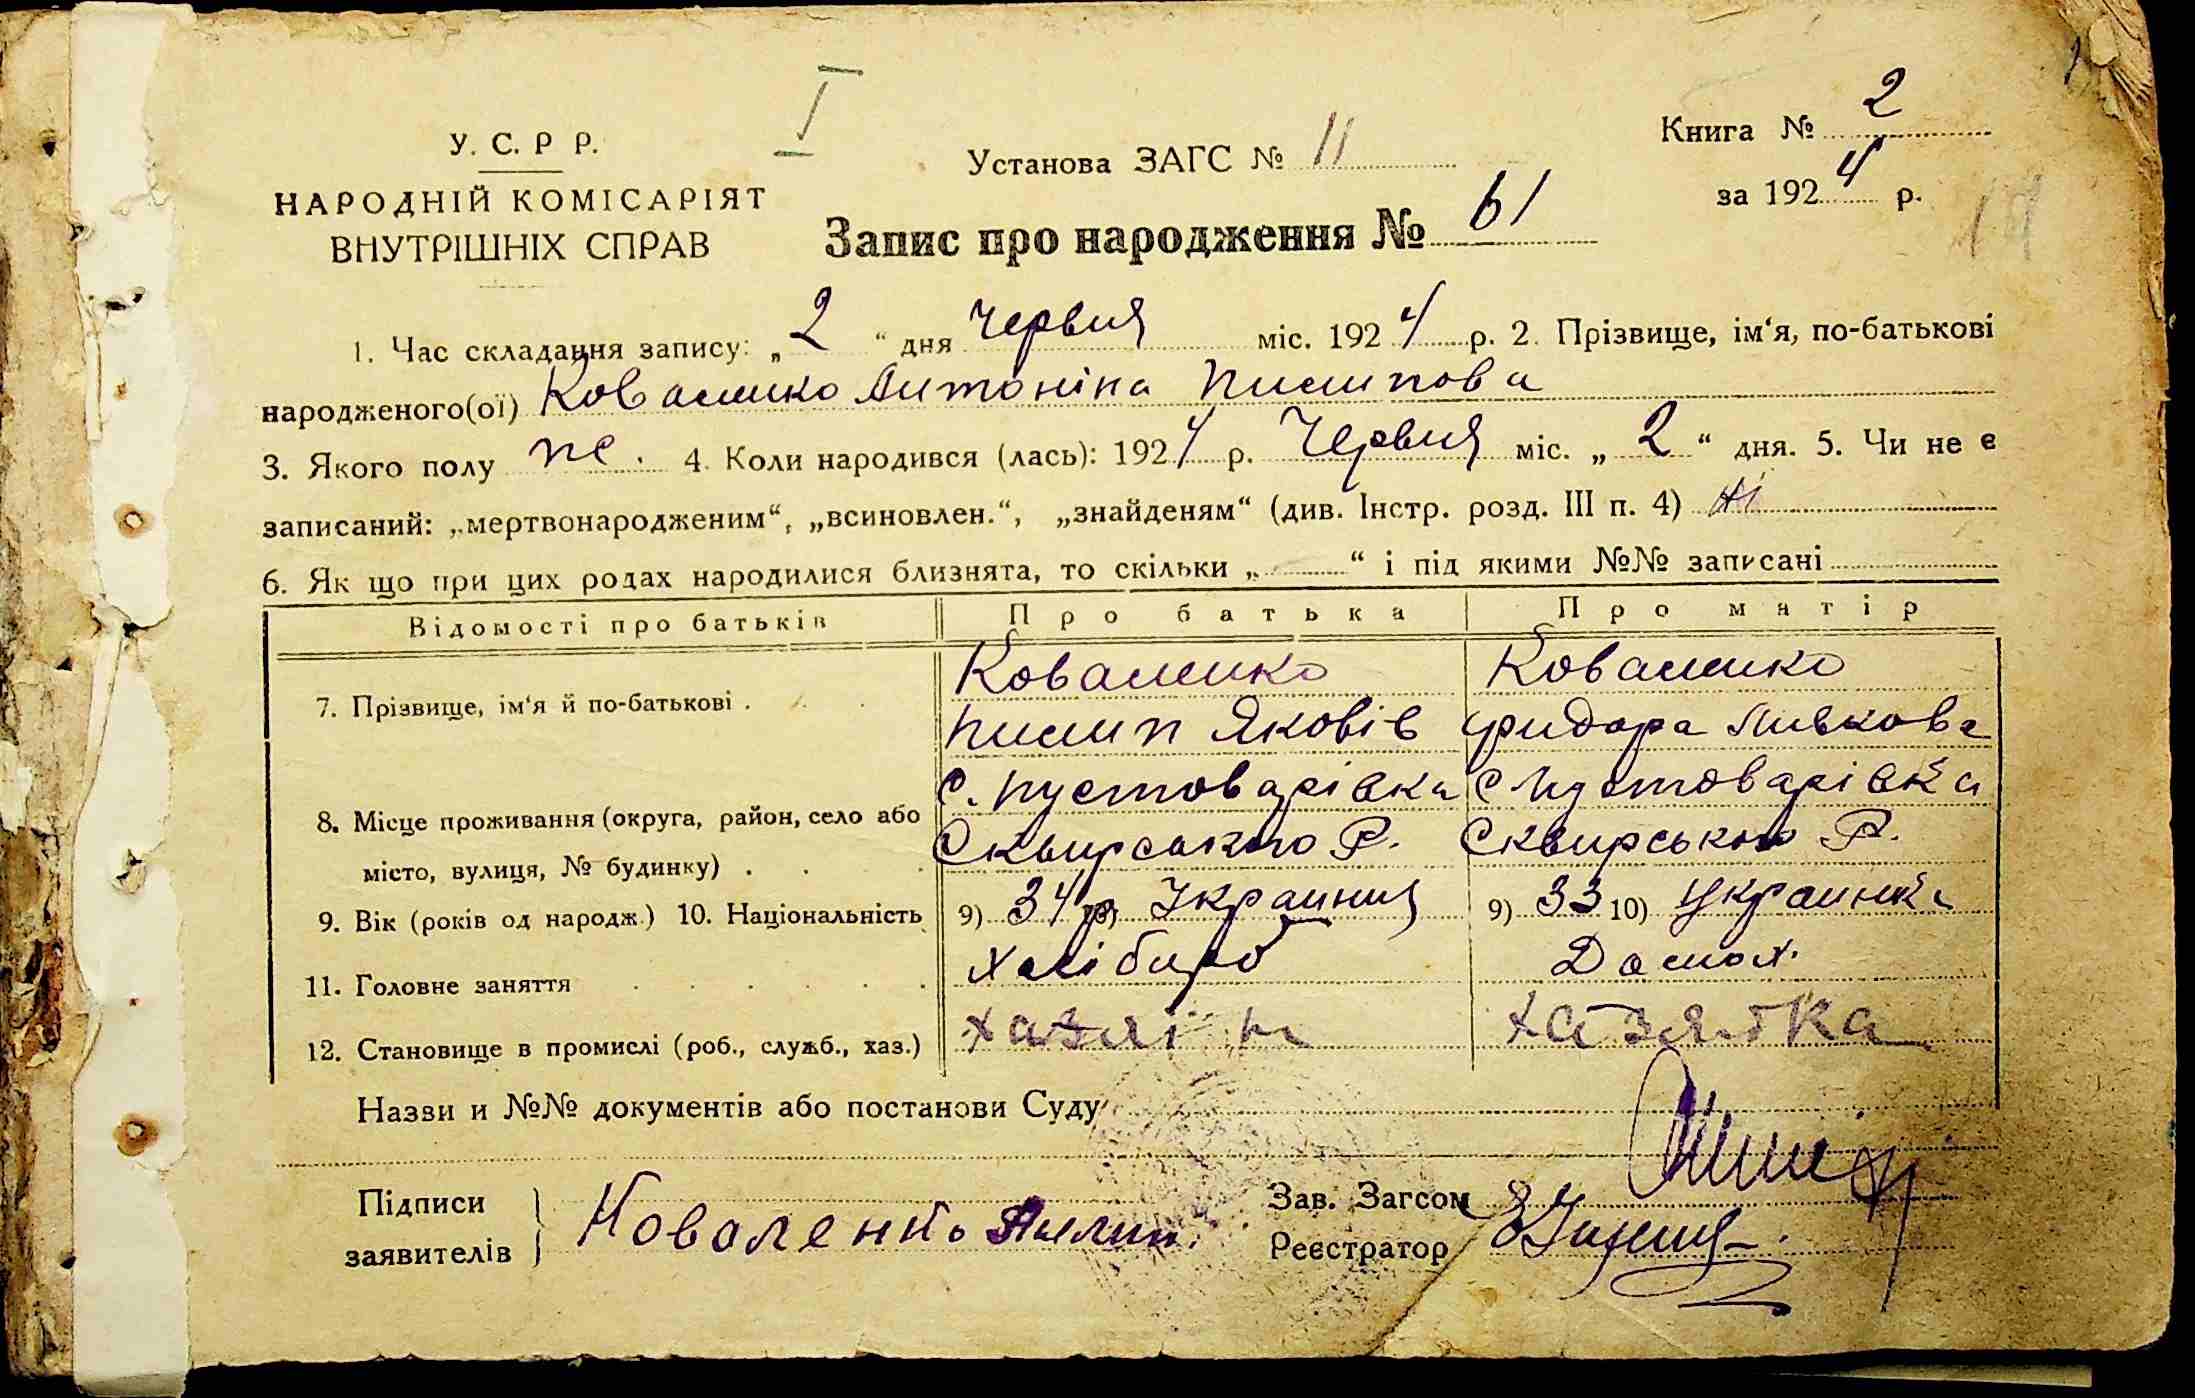 I
У. С. Р Р.
НАРОДНІЙ КОМІСАРІЯТ
ВНУТРІШНІХ СПРАВ
Установа ЗАГС № 11
Книга № 2
за 1924 р.
Запис про народження № 61
1. Час складання запису: „2“ дня Червня міс. 1924 р. 2. Прізвище, ім‘я, по-батькові
народженого(ої) Коваленко Антоніна Пилипова
3. Якого полу же. 4. Коли народився (лась): 1924 р. Червня міс. „2“ дня. 5. Чи не є
записаний: „мертвонародженим“, „всиновлен.“, „знайденям“ (див. Інстр. розд. III п. 4) Ні
6. Як що при цих родах народилися близнята, то скільки „ “ і під якими №№ записані
Відомості про батьків Про батька Про матір
7. Прізвище, ім‘я й по-батькові . Коваленко Пилип Яковів Коваленко Фидора Левкова
8. Місце проживання (округа, район, село або місто, вулиця, № будинку) . С. Пустоварівка Сквирського Р. С Пустоварівка Сквирського Р.
9. Вік (років од народж.) 10. Національність 9) 34 10) Украинец 9) 33 10) Украинка
11. Головне заняття Хлібороб Домох.
12. Становище в промислі (роб., служб., хаз.) хазяін хазяйка
Назви и №№ документів або постанови Суду
Підписи
заявителів
Коваленко Пилип.
Зав. Загсом
Реєстратор